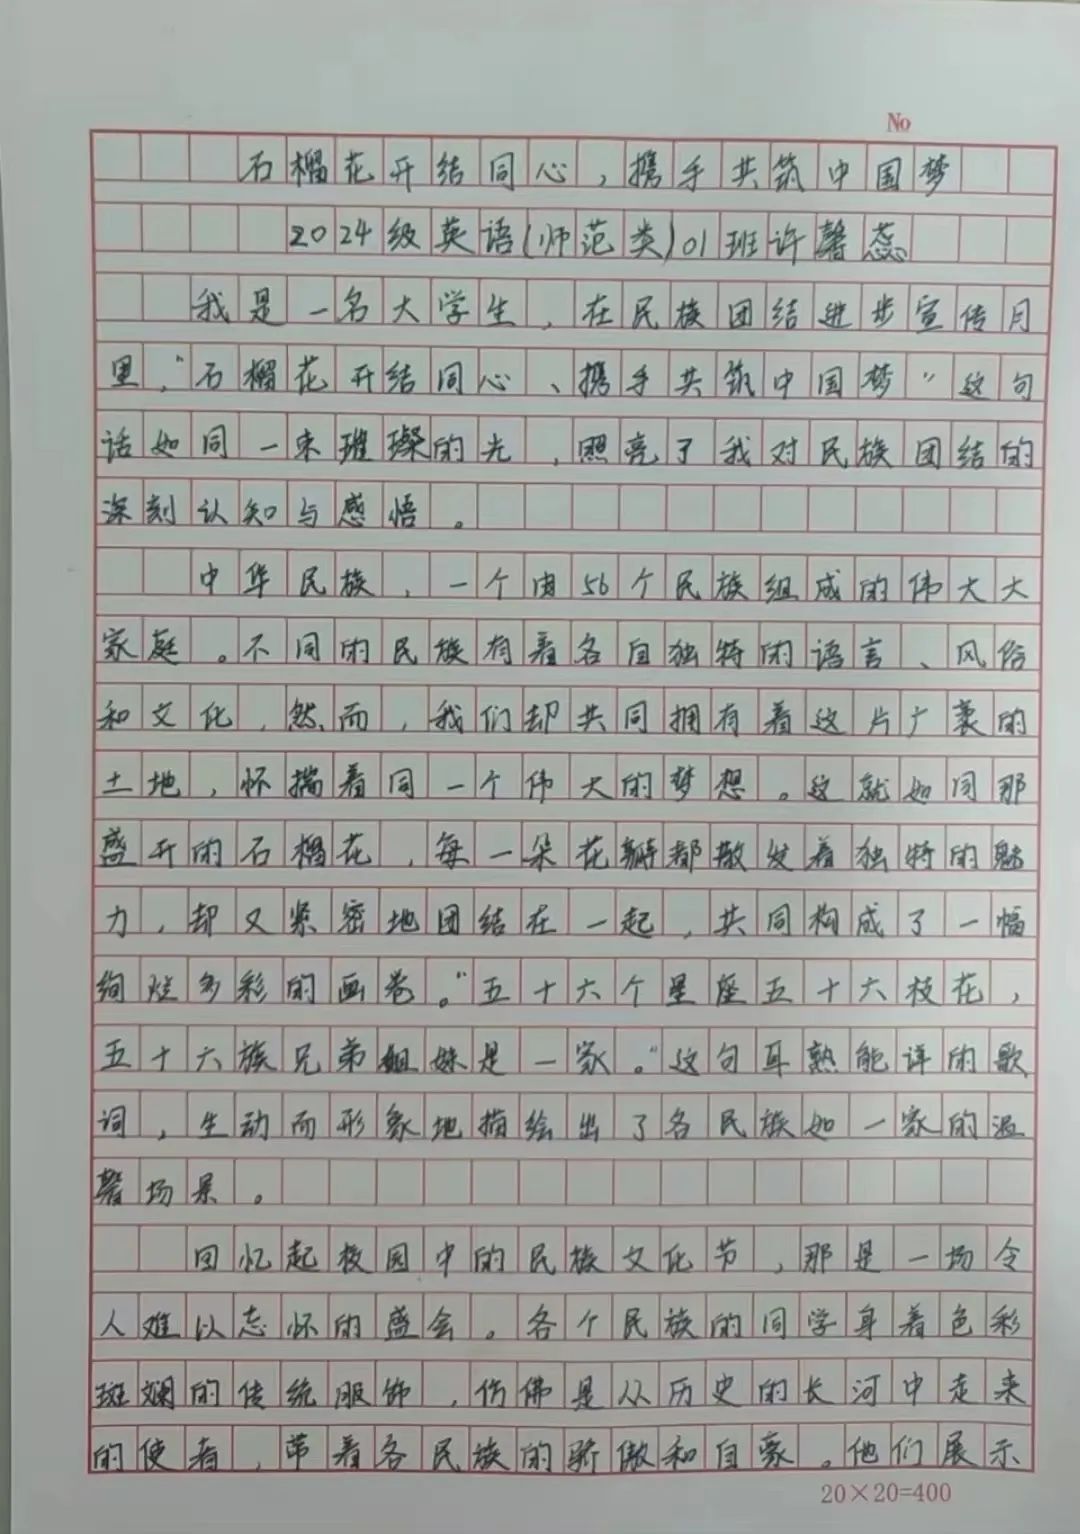 No
石榴花开结同心，携手共筑中国梦
2024级英语(师范类)01班许馨蕊
我是一名大学生，在民族团结进步宣传月
里，“石榴花开结同心、携手共筑中国梦”这句
话如同一束璀璨的光，照亮了我对民族团结的
深刻认知与感悟。
中华民族，一个由56个民族组成的伟大大
家庭。不同的民族有着各自独特的语言、风俗
和文化，然而，我们却共同拥有着这片广袤的
土地，怀揣着同一个伟大的梦想。这就如同那
盛开的石榴花，每一朵花瓣都散发着独特的魅
力，却又紧密地团结在一起，共同构成了一幅
绚烂多彩的画卷。“五十六个星座五十六枝花，
五十六族兄弟姐妹是一家。”这句耳熟能详的歌
词，生动而形象地描绘出了各民族如一家的温
馨场景。
回忆起校园中的民族文化节，那是一场令
人难以忘怀的盛会。各个民族的同学身着色彩
斑斓的传统服饰，仿佛是从历史的长河中走来
的使者，带着各民族的骄傲和自豪。他们展示
20×20=400